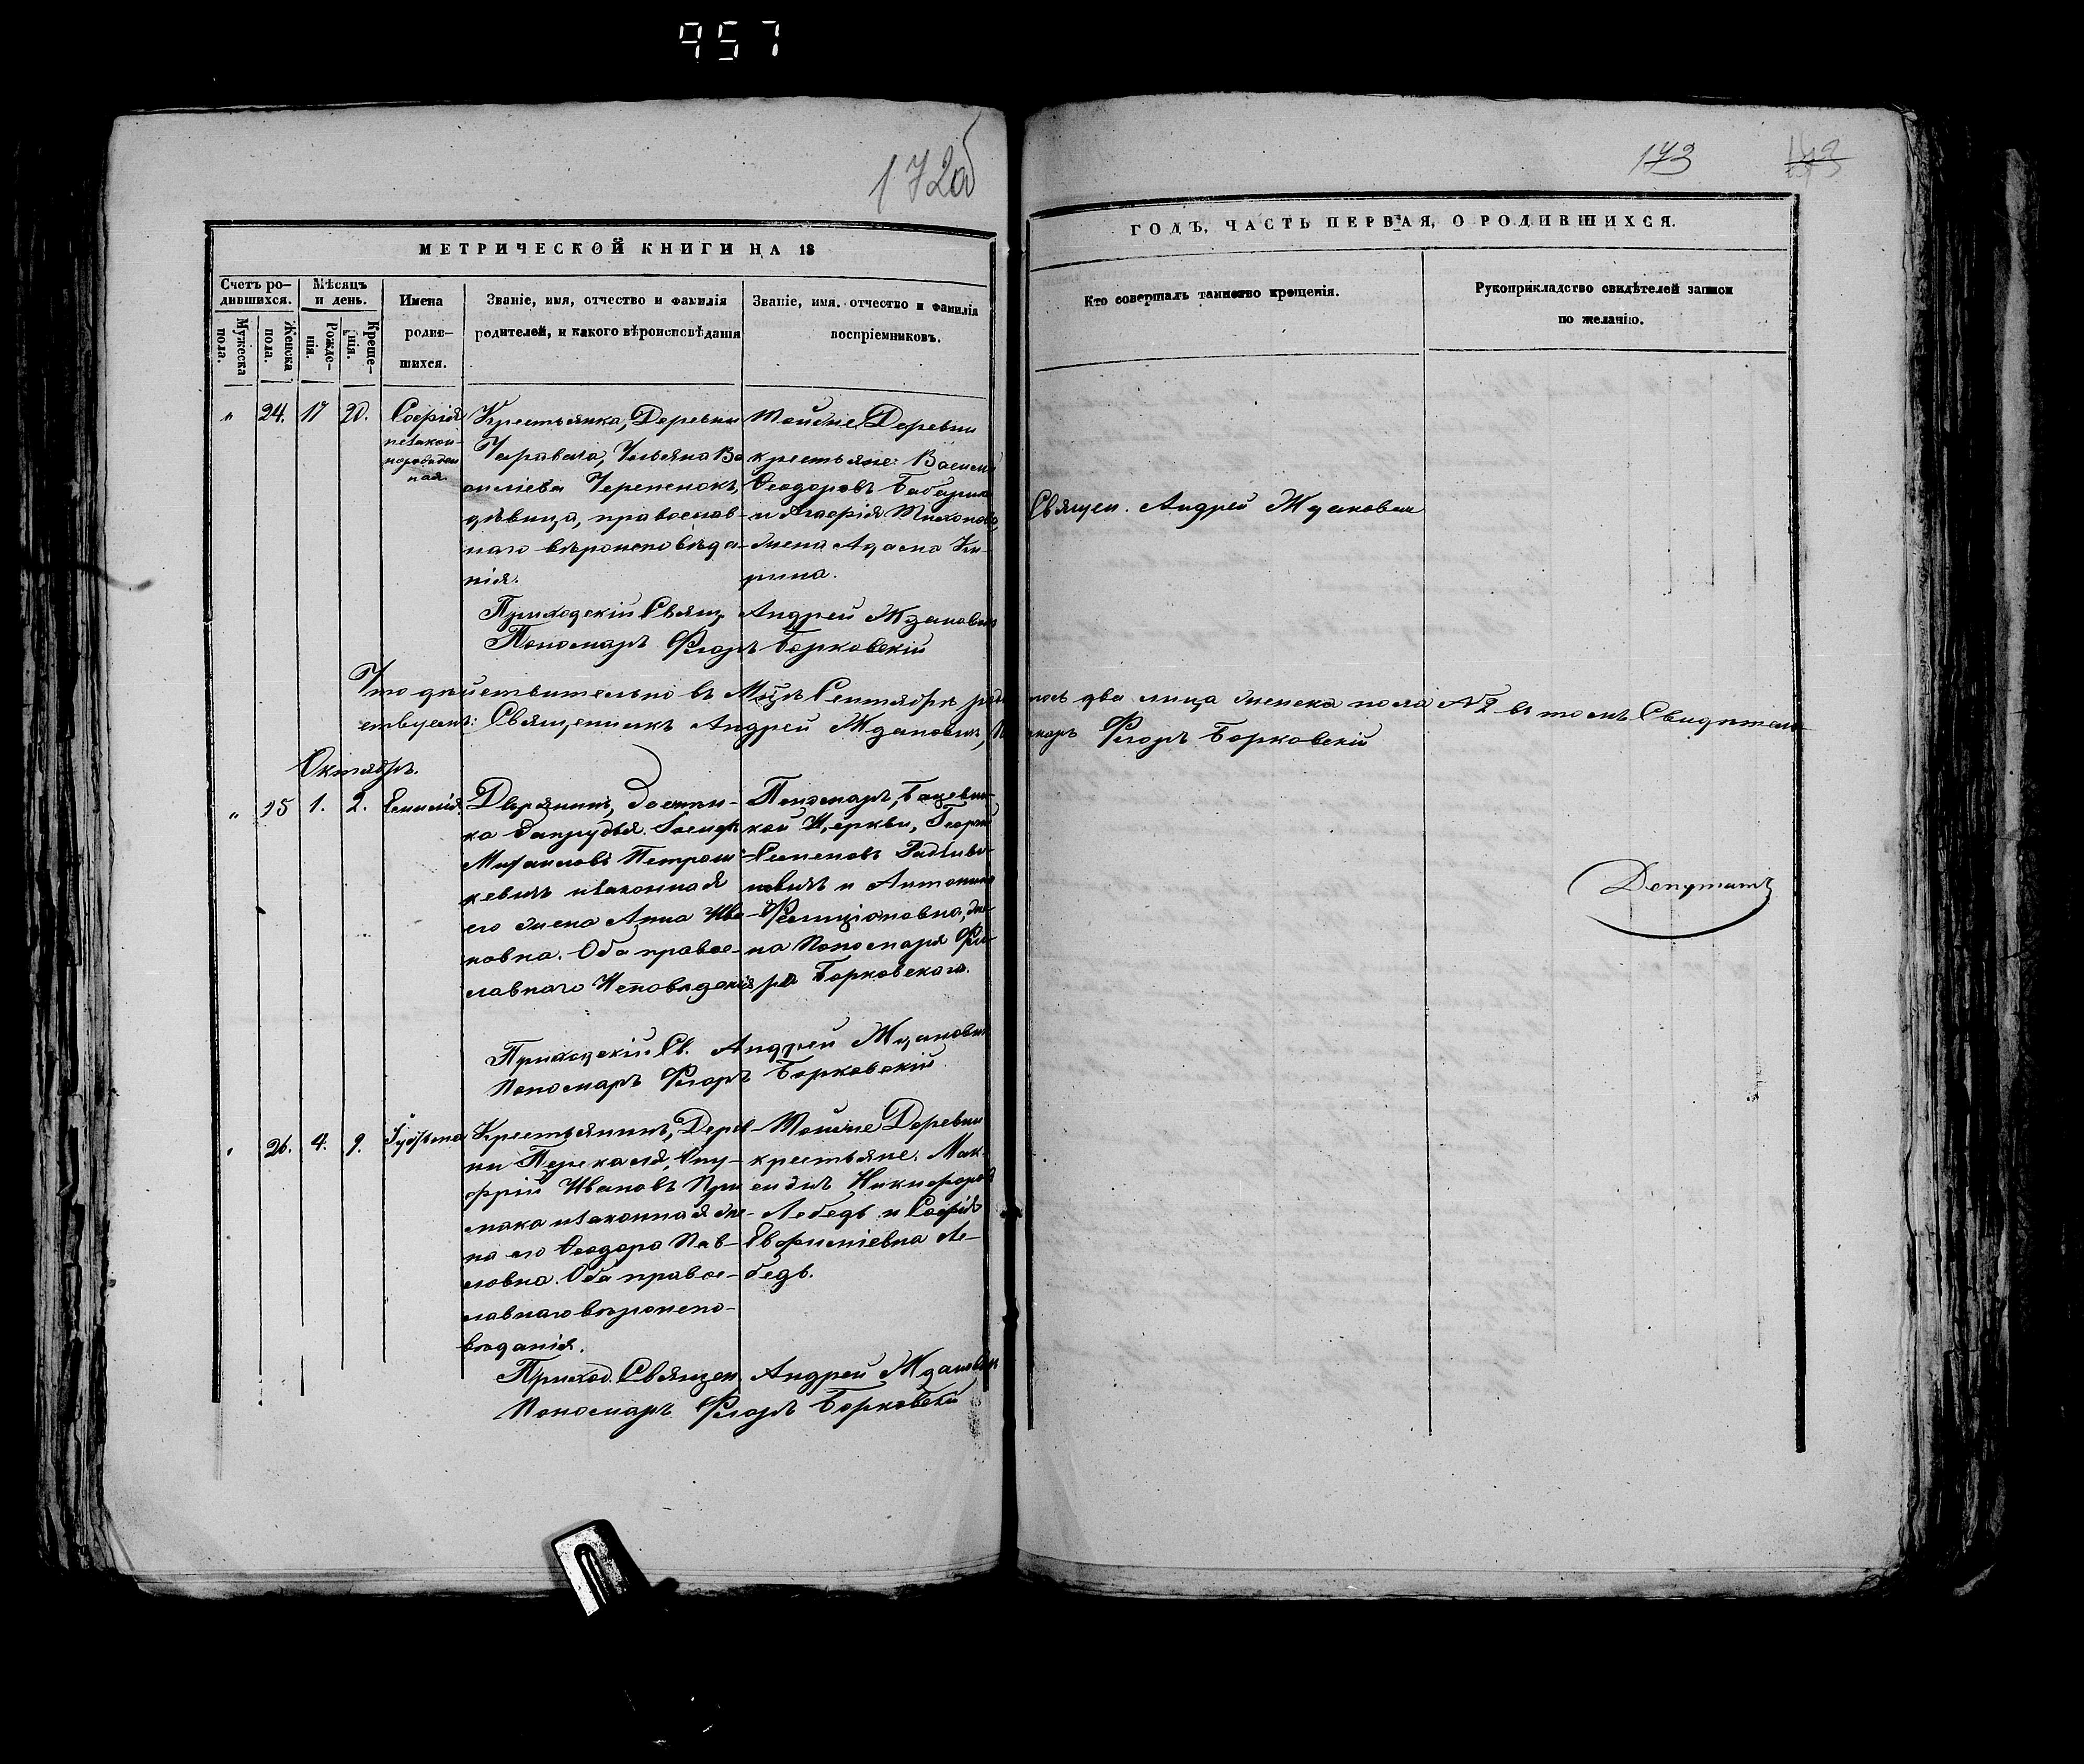 957
172об
173
173
МЕТРИЧЕСКОЙ КНИГИ НА 18
ГОДЪ, ЧАСТЬ ПЕРВАЯ, О РОДИВШИХСЯ.
Счетъ ро-
дившихся.
Мужеска пола.
Женска пола.
Мѣсяцъ
и день.
Рожде-
нія.
Креще-
нія.
Имена
родив-
шихся.
Званіе, имя, отчество и фамилія
родителей, и какого вѣроисповѣданія
Званіе, имя, отчество и фамилія
воспріемниковъ.
Кто совершалъ таинство крещенія.
Рукоприкладство свидѣтелей записи
по желанію.
" 24. 17 20.
Софія
незакон-
норожден
ная.
Крестьянка, Деревни
Ульяна Ва
силіева Черепенокъ,
дѣвица, православ-
наго вѣроисповѣда-
нія.
Тойже Деревни
крестьяне: Василій
Ѳеодоровъ
и Агафія Тихонова,
жена Адама Ки-
рика.
Священ. Андрей Ждановичъ
Приходскій Свящ. Андрей Ждановичъ
Пономаръ Флоръ Борковскій
Что дѣйствительно въ Мцѣ Сентябрѣ родилось два лица женска пола №2 въ томъ Свидѣтель
ствуемъ: Священникъ Андрей Ждановичъ, Пономаръ Флоръ Борковскій
Октябрь.
" 25 1. 2.
Емилія
Дворянинъ, Застѣн-
ка Запрудья Іосифъ
Михаиловъ Петраш-
кевичъ и законная
его жена Анна Ива-
новна. Оба правос-
лавнаго Исповѣданія
Пономарь,
кой Церкви, Георгій
Семеновъ
новичъ и Антонина
Фелиціановна, же-
на Пономаря Фло-
ра Борковскаго.
Депутатъ
Приходскій Св. Андрей Ждановичъ
Пономаръ Флоръ Борковскій
" 26. 4. 9.
Іустина
Крестьянинъ, Дерев-
ни Перекаля, Ону-
фрій Ивановъ При
мака и законная же-
на его Ѳеодора Пав-
ловна. Оба правос-
лавнаго вѣроиспо-
вѣданія.
Тойже Деревни
крестьяне. Мак-
симъ Никифоровъ
Лебедь и Софія
Евфиміевна Ле-
бедь.
Приход. Священ. Андрей Ждановичъ
Пономаръ Флоръ Борковскій